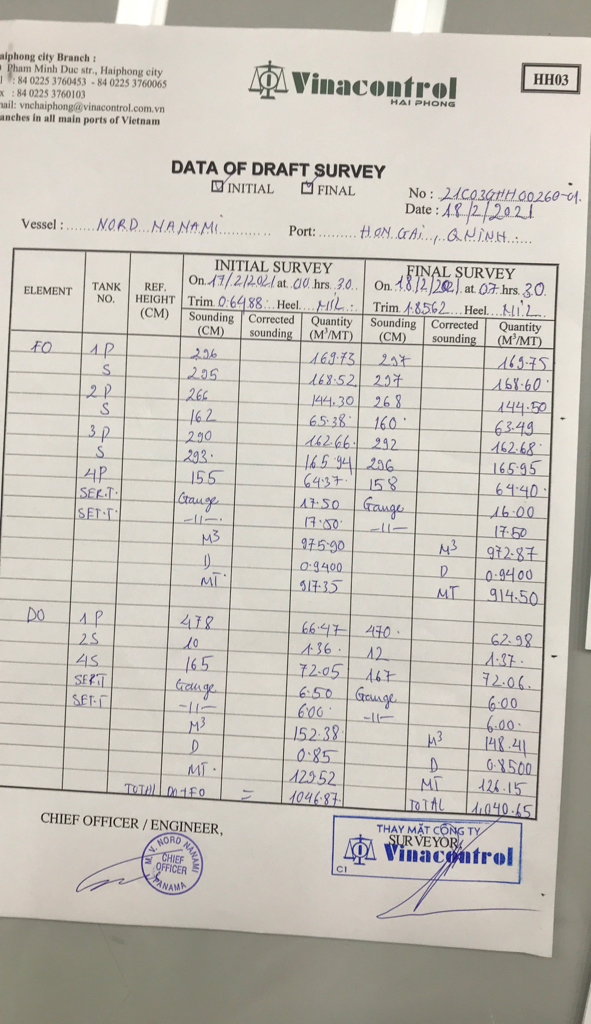 aiphong city Branch :
Pham Minh Duc str., Haiphong city
: 84 0225 3760453 - 84 0225 3760065
x : 84 0225 3760103
nail: vnchaiphong@vinacontrol.com.vn
anches in all main ports of Vietnam
Vinacontrol
HAI PHONG
HH03
DATA OF DRAFT SURVEY
INITIAL FINAL
No : 21C03GHH00260-01
Date : 18/2/2021
Vessel : NORD NANAMI Port: HON GAI, QNINH
ELEMENT TANK NO. REF. HEIGHT (CM)
INITIAL SURVEY
On 17/2/2021 at 00 hrs. 30
Trim 0.6488 Heel NIL
FINAL SURVEY
On 18/2/2021 at 07 hrs. 30
Trim 1.8562 Heel NIL
Sounding (CM) Corrected sounding Quantity (M³/MT) Sounding (CM) Corrected sounding Quantity (M³/MT)
FO 1P 296 169.73 297 169.75
S 295 168.52 297 168.60
2P 266 144.30 268 144.50
S 162 65.38 160 63.49
3P 290 162.66 292 162.68
S 293 165.94 296 165.95
4P 155 64.37 158 64.40
SER.T. Gauge 17.50 Gauge 16.00
SET.T. -11- 17.50 -11- 17.50
M³ 975.90 M³ 972.87
D 0.9400 D 0.9400
MT 917.35 MT 914.50
DO 1P 478 66.47 470 62.98
2S 10 1.36 12 1.37
4S 165 72.05 167 72.06
SER.T Gauge 6.50 Gauge 6.00
SET.T -11- 6.00 -11- 6.00
M³ 152.38 M³ 148.41
D 0.85 D 0.8500
MT 129.52 MT 126.15
TOTAL DO+FO = 1046.87 TOTAL 1,040.65
CHIEF OFFICER / ENGINEER,
M.V. NORD NANAMI
CHIEF
OFFICER
PANAMA
THAY MẶT CÔNG TY
SURVEYOR,
Vinacontrol
C1